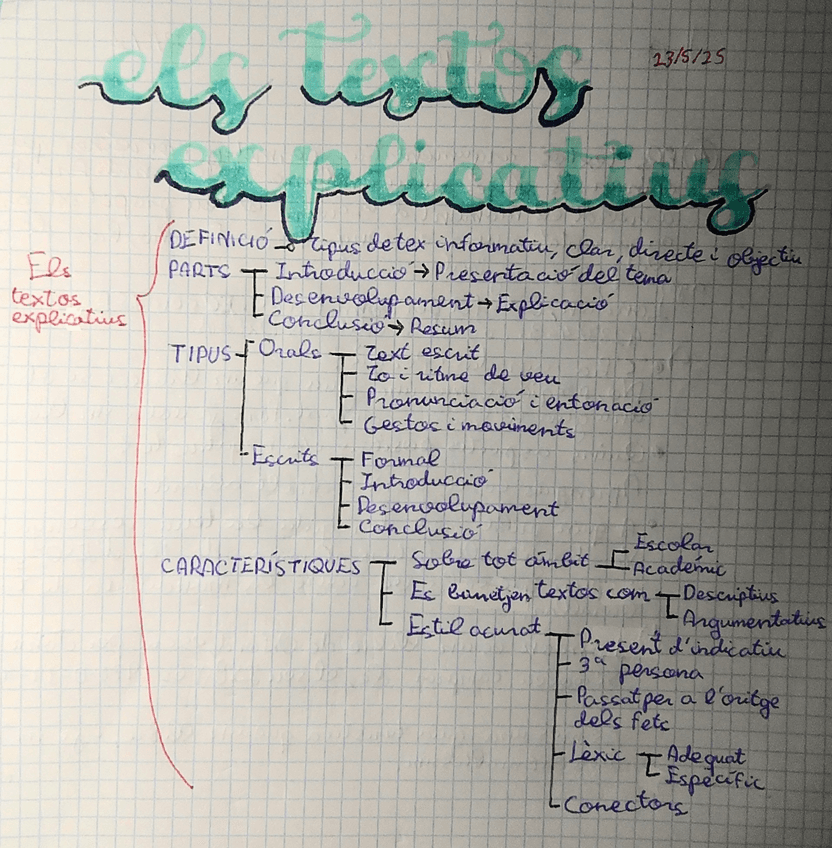 els textos
23/5/25
explicatius
Els
textos
explicatius
DEFINICIÓ → tipus de tex informatiu, clar, directe i objectiu
PARTS Introducció → Presentació del tema
Desenvolupament → Explicació
Conclusió → Resum
TIPUS Orals Text escrit
To i ritme de veu
Pronunciació i entonació
Gestos i moviments
Escrits Formal
Introducció
Desenvolupament
Conclusió
CARACTERÍSTIQUES Sobre tot àmbit Escolar
Académic
Es textos com Descriptius
Argumentatius
Estil acurat Present d'indicatiu
3ª persona
Passat per a l'oritge
dels fets
Lèxic Adequat
Específic
Conectors